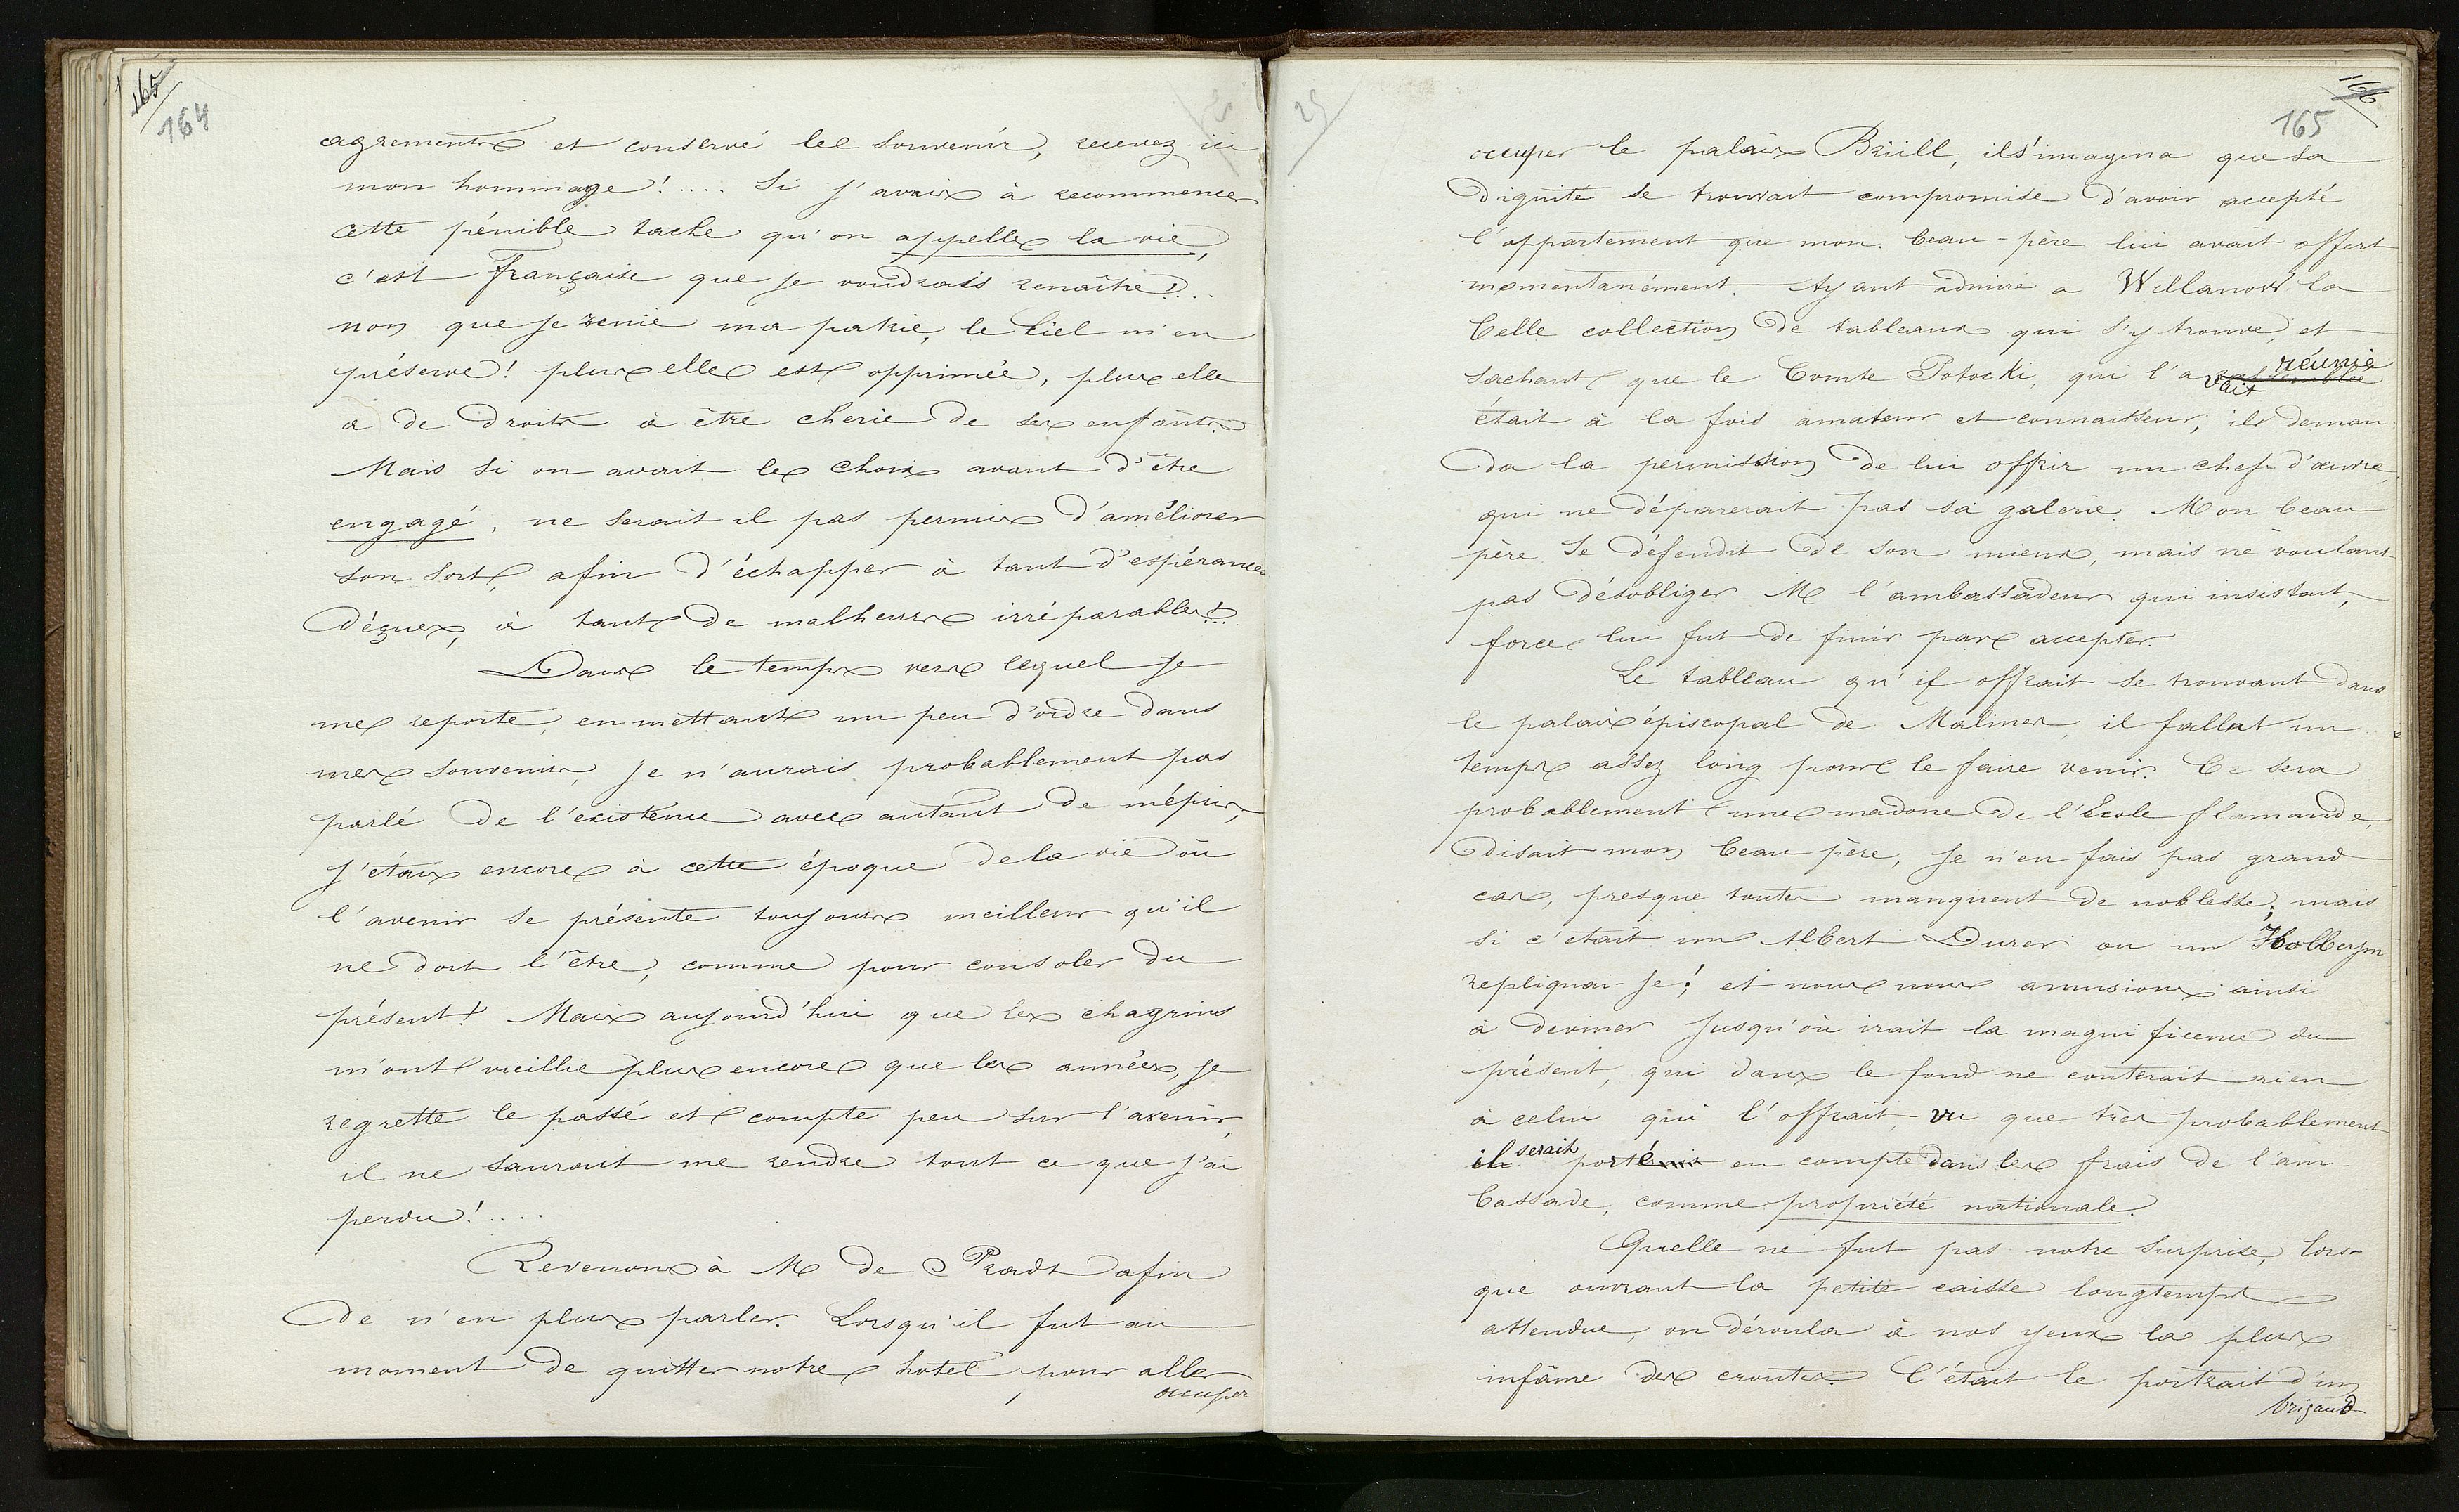 165
164
agrements et conservé le souvenir, recevez ici
mon hommage!.... Si j'avais à recommencer
cette pénible tache qu'on appelle la vie,
c'est française que je voudrais renaître!...
non que je renie ma patrie, le Ciel m'en
préserve! plus elle est opprimée, plus elle
a de droits à être cherie de ses enfants.
Mais si on avait le choix avant d'être
engagé, ne serait il pas permis d'améliorer
son sort, afin d'échapper à tant d'espérances
déçues, à tant de malheurs irréparables!..
Dans le temps vers lequel je
me reporte, en mettant un peu d'ordre dans
mes souvenirs, je n'aurais probablement pas
parlé de l'existence avec autant de mépris,
j'étais encore à cette époque de la vie où
l'avenir se présente toujours meilleur qu'il
ne doit l'être, comme pour consoler du
présent! Mais aujourd'hui que les chagrins
m'ont vieillie plus encore que les années, je
regrette le passé et compte peu sur l'avenir,
il ne saurait me rendre tout ce que j'ai
perdu!....
Revenons à M de Pradt afin
de n'en plus parler. Lorsqu'il fut au
moment de quitter notre hotel, pour aller
occuper
25
166
165
occuper le palais Brüll, il s'imagina que sa
dignité se trouvait compromise d'avoir accepté
l'appartement que mon beau-père lui avait offert
momentanément. Ayant admiré a Willanow la
belle collection de tableaux qui s'y trouve, et
sachant que le Comte Potocki, qui l'avait rassemblée réunie
était à la fois amateur et connaisseur, il deman-
da la permission de lui offrir un chef-d'œuvre,
qui ne déparerait pas sa galerie. Mon beau
père se défendit de son mieux, mais ne voulant
pas désobliger M l'ambassadeur qui insistait,
force lui fut de finir par accepter.
Le tableau qu'il offrait se trouvant dans
le palais épiscopal de Malines, il fallut un
temps assez long pour le faire venir. Ce sera
probablement une madone de l'Ecole flamande,
disait mon beau père, je n'en fais pas grand
cas, presque toutes manquent de noblesse; mais
si c'était un Albert Durer ou un Holbeyn
repliquai-je! et nous nous amusions ainsi
à deviner jusqu'où irait la magnificence du
présent, qui dans le fond ne couterait rien
à celui qui l'offrait, vu que très probablement
il serait porté en compte dans les frais de l'am-
bassade, comme propriété nationale.
Quelle ne fut pas notre surprise, lors-
que ouvrant la petite caisse longtemps
attendue, on déroula à nos yeux la plus
infâme des croutes. C'était le portrait d'un
brigand